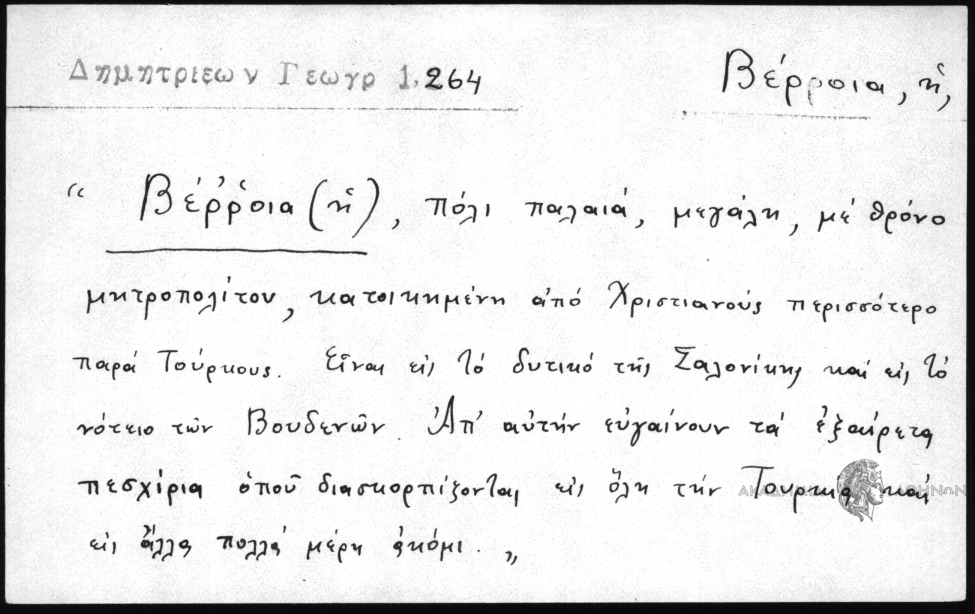 Δημητριεων Γεωγρ 1, 264
Βέρροια, ἡ,
“ Βέῤῥοια (ἡ), πόλι παλαιά, μεγάλη, μέ θρόνο
μητροπολίτου, κατοικημένη ἀπό Χριστιανούς περισσότερο
παρά Τούρκους. Εἶναι εἰς τό δυτικό τῆς Σαλονίκης καί εἰς τό
νότειο τῶν Βουδενῶν. Ἀπ' αὐτήν εὐγαίνουν τά ἐξαίρετα
πεσχίρια ὁποῦ διασκορπίζονται εἰς ὅλη τήν Τουρκιά καί
εἰς ἄλλα πολλά μέρη ἀκόμι. „
ΑΚΑΔΗΜΙΑ ΑΘΗΝΩΝ